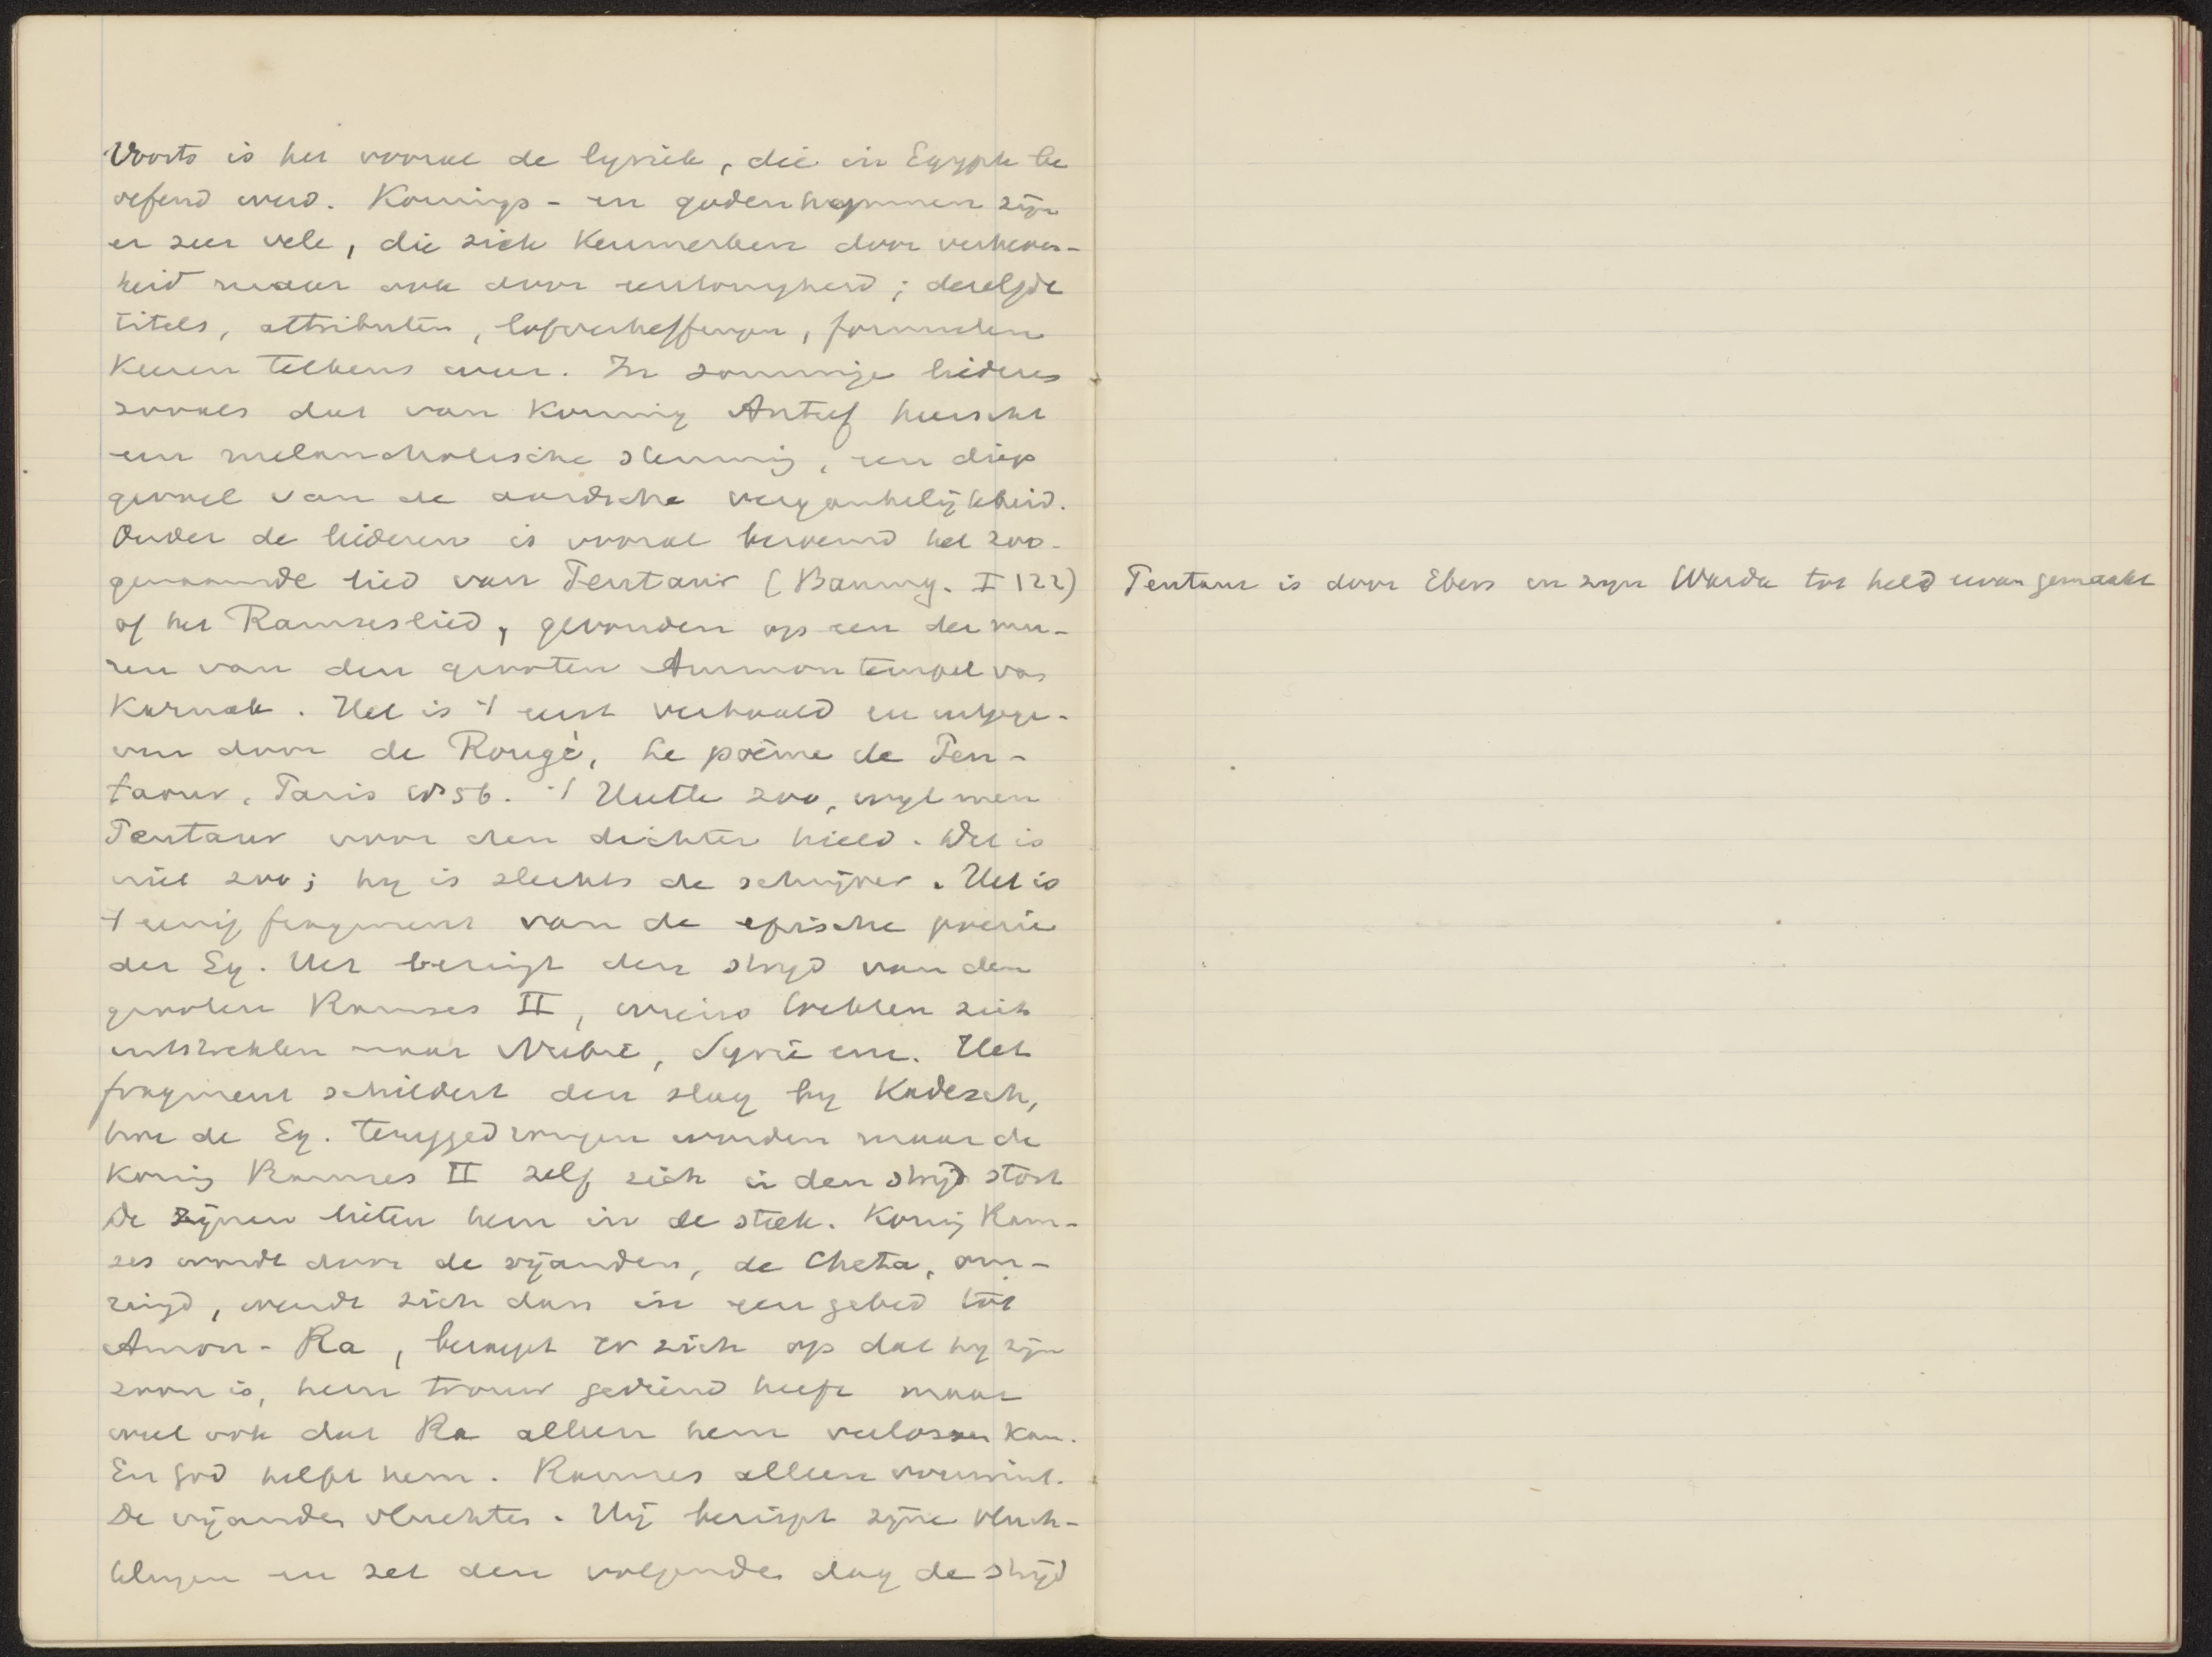 Voorts is het vooral de lyriek, die in Egypte be
oefend werd. Konings- en godenhymnen zijn
er zeer vele, die zich kenmerken door verheven-
heid maar ook door eentonigheid; dezelfde
titels, attributen, lofverheffingen, formulen
keeren telkens weer. In sommige liederen
zooals dat van Koning Antef heerscht
een melancholische stemming, een diep
gevoel van de aardsche vergankelijkheid.
Onder de liederen is vooral beroemd het zoo-
genaamde lied van Pentaur (Baumg. I 122)
of het Ramseslied, gevonden op een der mu-
ren van den grooten Ammon tempel van
Karnak. Het is 't eerst vertaald en uitgege-
ven door de Rougé, Le poème de Pen-
taour, Paris 1856. 't Heette zoo, wijl men
Pentaur voor den dichter hield. Dit is
niet zoo; hij is slechts de schrijver. Het is
't eenig fragment van de epische poezie
der Eg. Het bezingt den strijd van den
grooten Ramses II, wiens tochten zich
uitstrekten naar Nubië, Syrië enz. Het
fragment schildert den slag bij Kadesch,
hoe de Eg. teruggedrongen worden maar de
Koning Ramses II zelf zich in den strijd stort
De zijnen lieten hem in de steek. Koning Ram-
ses wordt door de vijanden, de Cheta, om-
ringd, wendt zich dan in een gebed tot
Amon-Ra, beroept er zich op dat hij zijn
zoon is, hem trouw gediend heeft maar
weet ook dat Ra alleen hem verlossen kan.
En god helpt hem. Ramses alleen overwint.
De vijanden vluchten. Hij berispt zijne vluch-
telingen en zet den volgenden dag de strijd
Pentaur is door Ebers in zijn Warda tot held ervan gemaakt